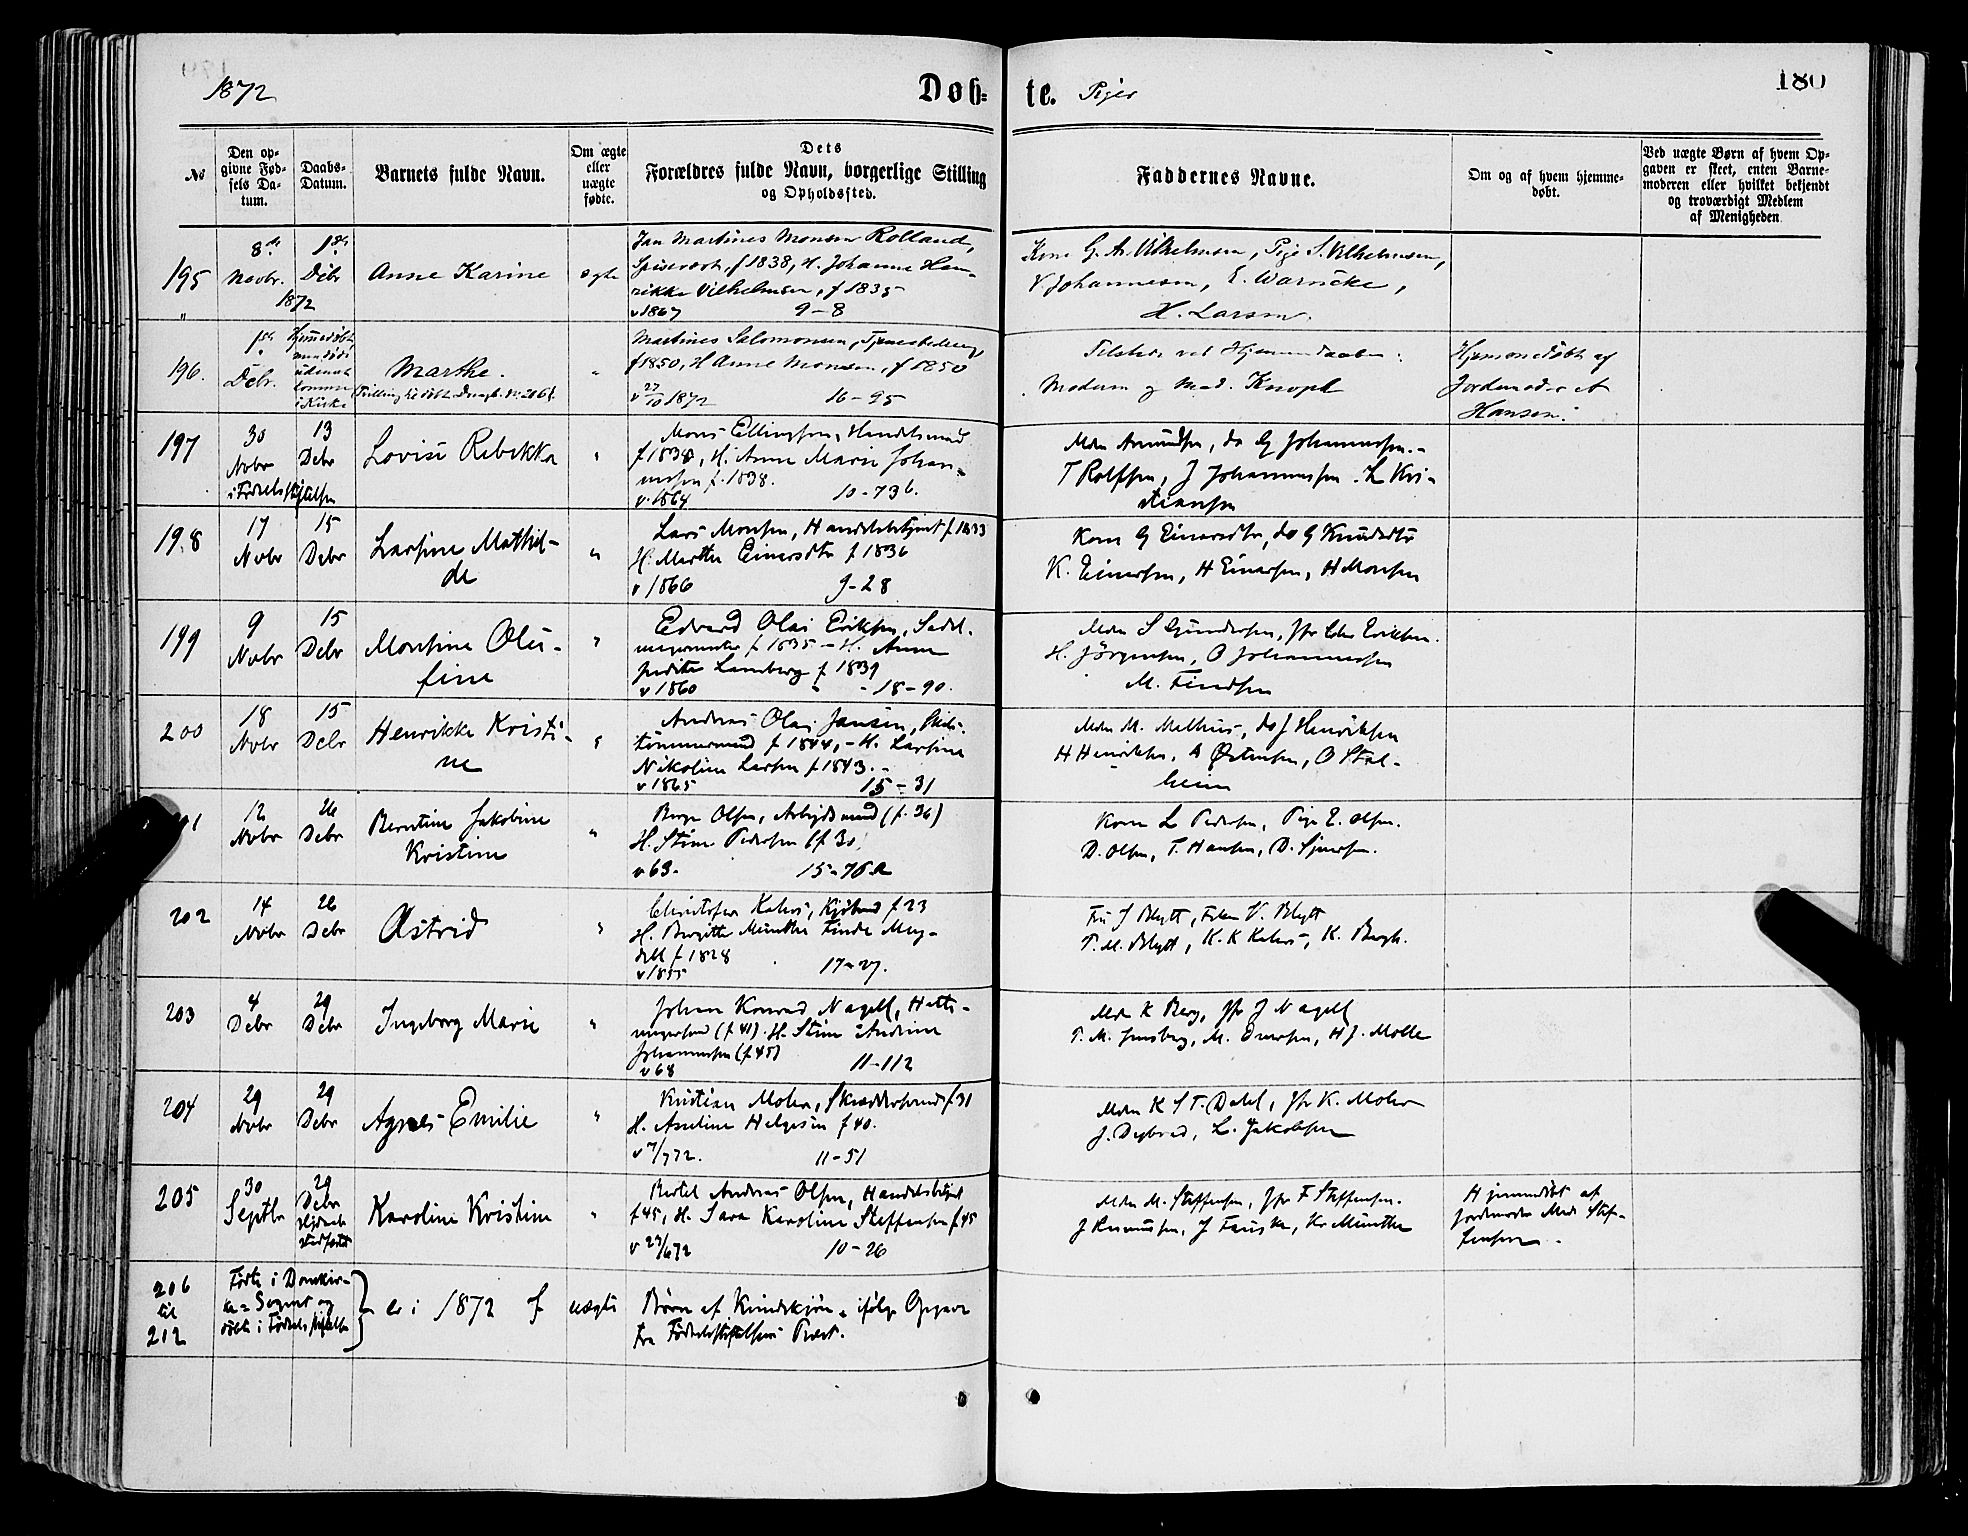 1872
Døb- te. Piger
180
No
Den opgivne Fødsels Datum.
Daabs-Datum.
Barnets fulde Navn.
Om ægte eller uægte fødte.
Dets Forældres fulde Navn, borgerlige Stilling og Opholdssted.
Faddernes Navne.
Om og af hvem hjemmedøbt.
Ved uægte Børn af hvem Opgaven er skeet, enten Barnemoderen eller hvilket bekjendt og troværdigt Medlem af Menigheden
195
8de Novbr. 1872
1ste Debr
Anne Karine
ægte
Jan Martines Monsen Rolland,
Spisevært, f 1838, H. Johanne Hen-
rikke Vilhelmsen, f 1835
v 1867 9-8
Kone G. A. Vilhelmsen, Pige S. Vilhelmsen,
V Johannesen, E. Warncke,
H. Larsen.
196.
1ste Debr.
Marthe.
"
Martines Salomonsen,
f 1850, H Anne Monsen, f 1850
v 27/10 1872 16-95
Modern og Mad. Knoph
Hjemmedøbt af
Jordemoder A
Hansen.
197
30 Novbr
13 Debr
i Fødselsstiftelsen
Lovise Rebekka
"
Mons Ellingsen, Handelsmand
f 1838, H. Anne Marie Johan-
nessen f. 1838.
v. 1864 10-736.
Mdm Amundsen, do G Johannessen.
T Rolfsen, J Johannessen. L Kri-
stiansen
198
17 Novbr
15 Debr
Larsine Mathil-
de
"
Lars Monsen, Handelsbetjent f 1833
H. Marthe Einersdtr f 1836
v 1866 9-28
Kone G Einersdtr, do G Knudsdtr
K. Einersen, H Einersen, H Monsen
199
9 Novbr
15 Debr
Monsine Olu-
fine
"
Edvard Olai Eriksen, Sadel-
magermester f 1835 - H. Anne
Lamberg f 1839
v 1860 18-90.
Mdm S Gundersen, Jfr Eriksen.
H. Jörgensen, O Johannessen
M. Findsen
200
18 Novbr
15 Debr
Henrikke Kristi-
ne
"
Andreas Olai Jansen, Skibs-
tømmermand f 1844, - H. Larsine
Nikoline Larsen f 1843.
v 1865 15-31
Mdm M. Melhuus, do J Henriksen
H Henriksen, A Østensen, O Stal-
heim
1
12 Novbr
26 Debr
Berntine Jakobine
Kristine
"
Berge Olsen, Arbejdsmand (f. 36)
H. Stine Pedersen (f 30)
v 63. 15-76a
Kone L Pedersen, Pige E. Olsen.
D. Olsen, T. Hansen, D. Sjursen.
202
14 Novbr
26 Debr
Østrid
"
Christofer Kahrs, Kjøbmd f 23
H. Birgitte Münthe Finde Mag-
dell f 1828
v 1855 17-27.
Fru J Blytt, Frkn V. Blytt
T. M. Blytt, K. K Kahrs, K. Bergh.
203
4 Debr
29 Debr
Ingeborg Marie
"
Johan Konrad Nagell, Hatte-
magersvend (f 41). H. Stine Andrine
Johannessen (f. 45)
v 68 11-112
Mdm K Berg, Jfr J Nagell
T. M. M. Iversen, H J. Molle
204
29 Novbr
29 Debr
Agnes Emilie
"
Kristian Mohn, Skræddersvend f 31
H. Aseline Helgesen f 40.
v 7/7 72. 11-51
Mdm K S T. Dahl, Jfr K. Mohn
J. Dybvad, L. Jakobsen
205
30 Septbr
29 Debr
stadfæstet
Karoline Kristine
"
Bertel Andreas Olsen, Handelsbetjent
f 45, H. Sara Karoline Steffensen f 45
v 23/6 72 10-26
Mdm M. Steffensen, Jfr F Steffensen.
J Rasmussen, J Fauske, Kr Münthe
Hjemmedøbt af
Jordemoder Mdm Stef-
fensen.
206
til
212
Fødte i Domkir-
ke-Sognet og
døbte i Fødselsstiftelsen
er i 1872 7 uægte Børn af Kvindekjøn, ifølge Opgave
fra Fødselsstiftelsens Præst.